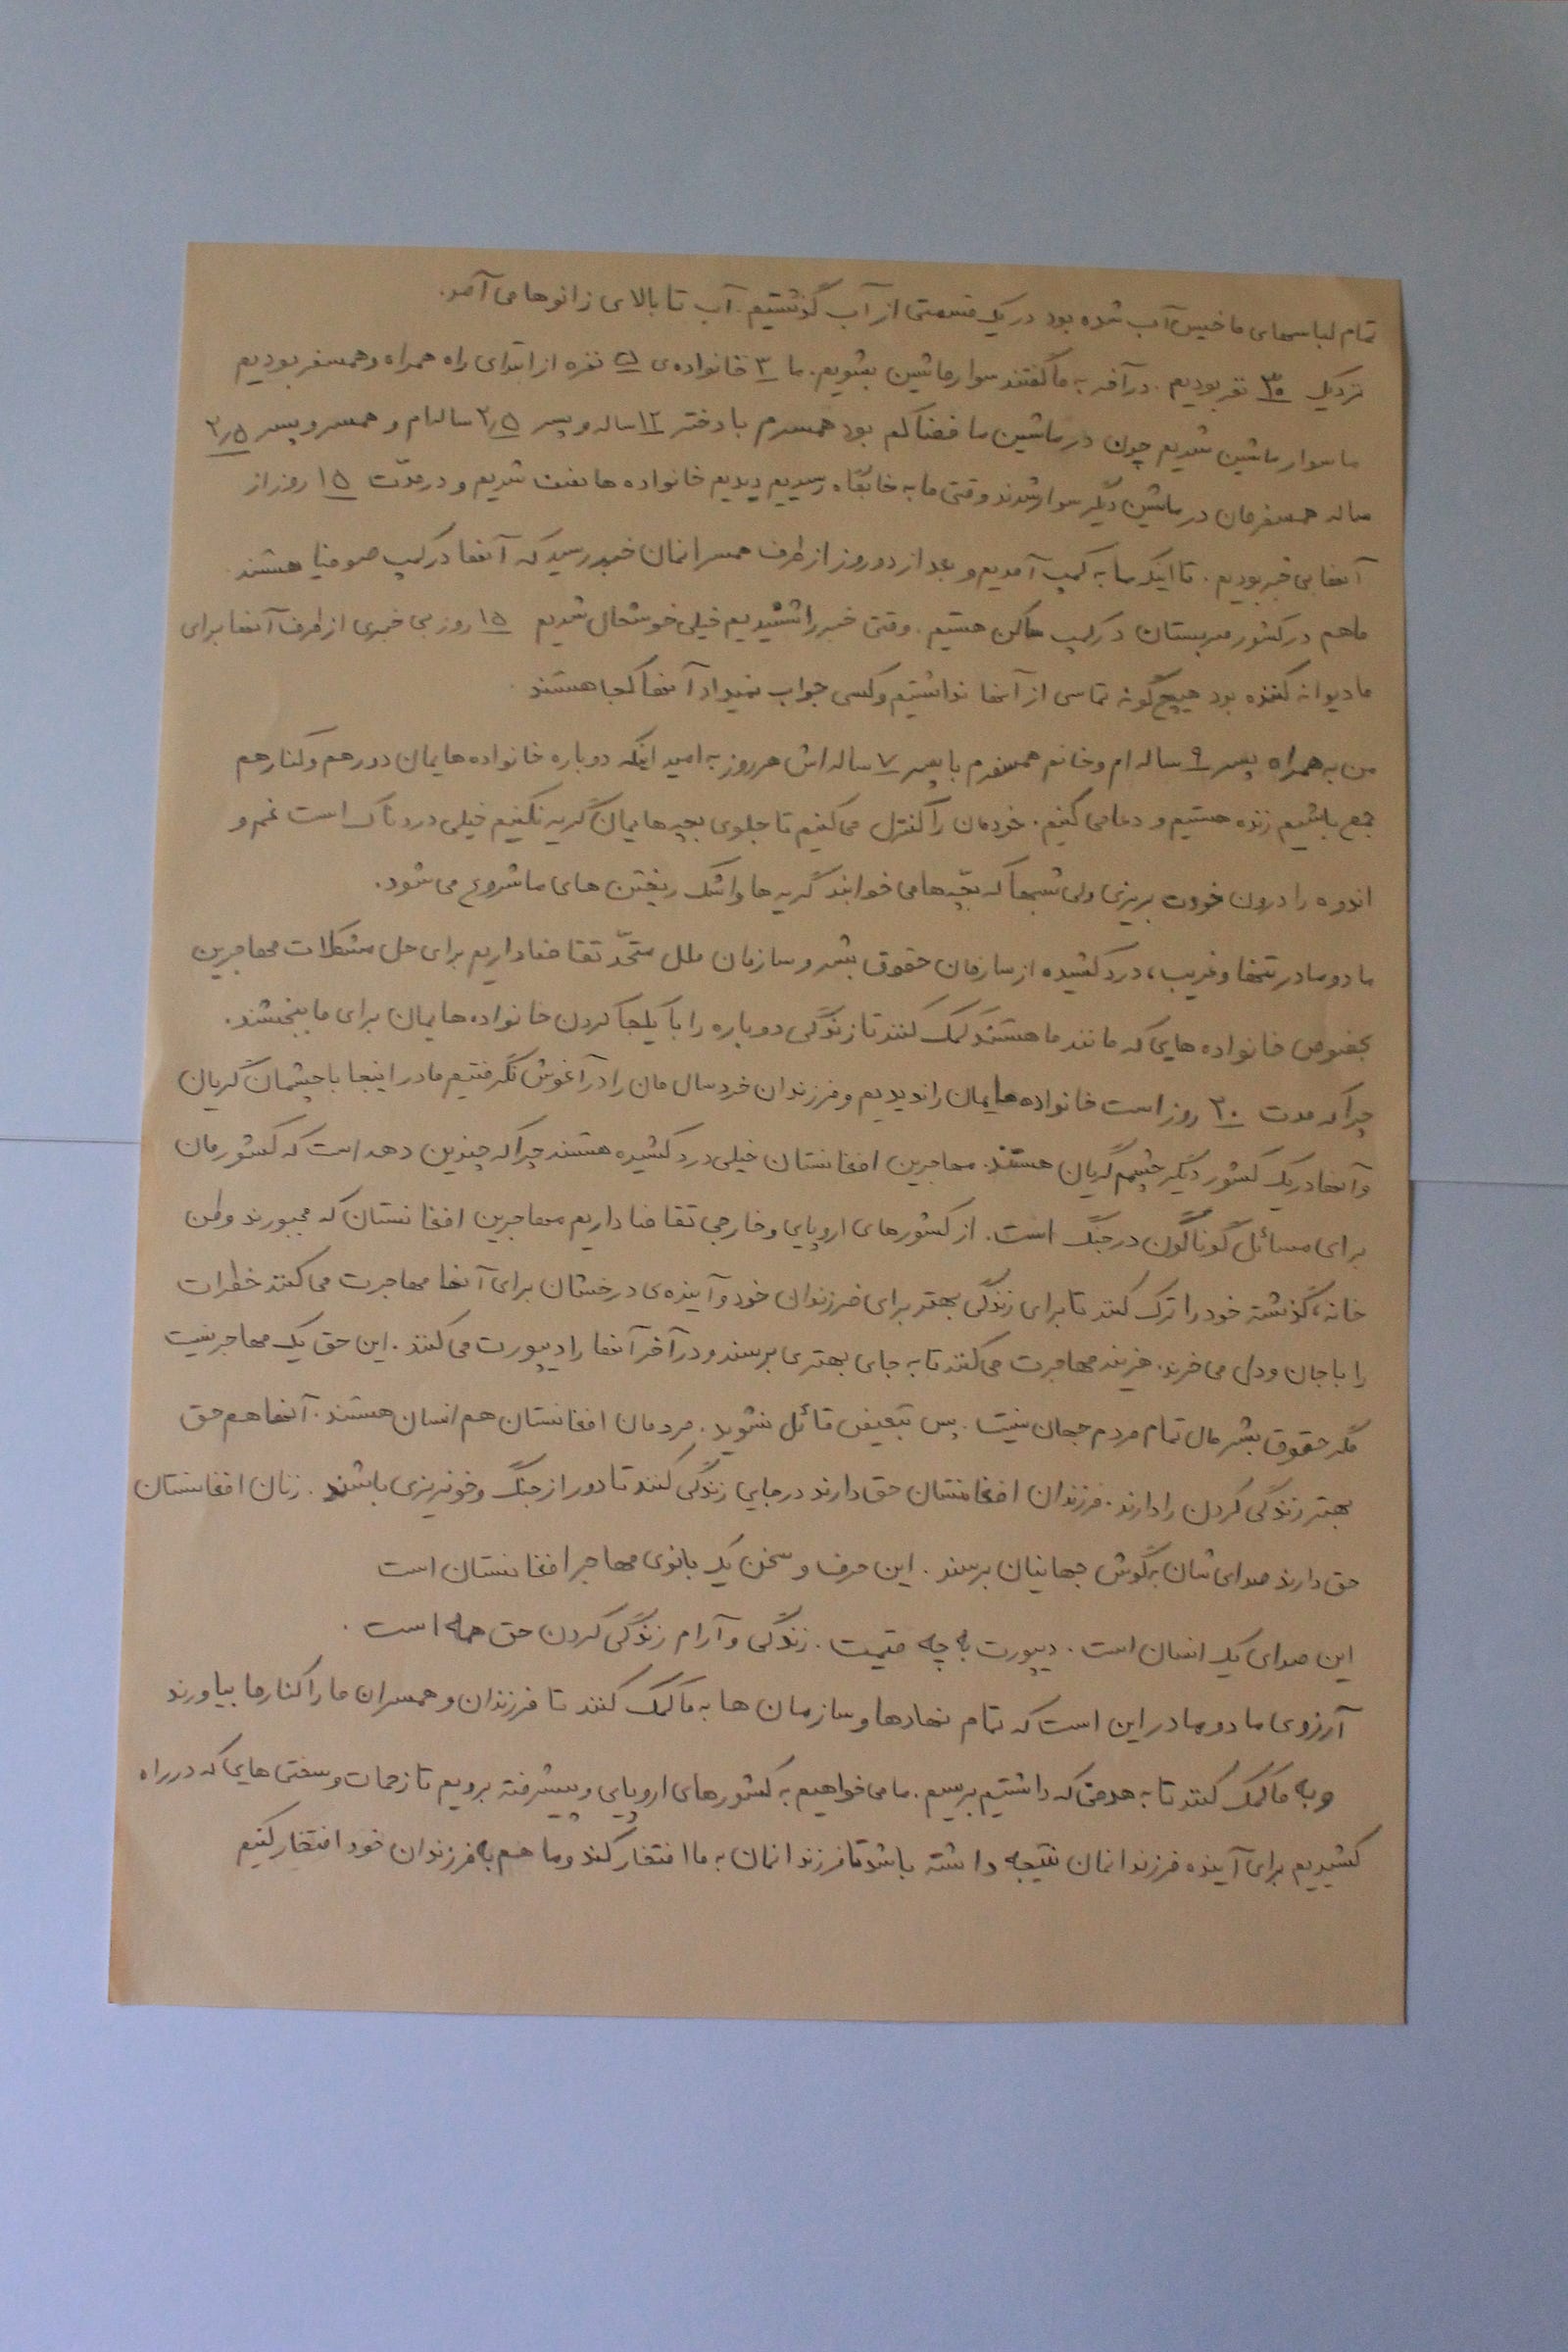 تمام لباسهای ما خیس آب شده بود در یک قسمتی از آب گذشتیم. آب تا بالای زانوها می آمد.
نزدیک ۳۰ نفر بودیم. در آخر به ما گفتند سوار ماشین بشویم. ما ۳ خانواده ی ۵ نفره از ابتدای راه همراه و همسفر بودیم
ما سوار ماشین شدیم چون در ماشین ما فضا کم بود همسرم با دختر ۱۲ ساله و پسر ۲/۵ ساله ام و همسر و پسر ۲/۵
ساله همسفرمان در ماشین دیگر سوار شدند وقتی ما به رسیدیم دیدیم خانواده ها نصف شدیم و در مدّت ۱۵ روز از
آنها بی خبر بودیم. تا اینکه ما به کمپ آمدیم و بعد از دو روز از طرف همسرانمان خبر رسید که آنها در کمپ صوفیا هستند
ما هم در کشور صربستان در کمپ ساکن هستیم. وقتی خبر را شنیدیم خیلی خوشحال شدیم ۱۵ روز بی خبری از طرف آنها برای
ما دیوانه کننده بود هیچ گونه تماسی از آنها نداشتیم و کسی جواب نمیداد آنها کجا هستند
من به همراه پسر ۹ ساله ام و خانم همسفرم با پسر ۷ ساله اش هر روز به امید اینکه دوباره خانواده هایمان دور هم و کنار هم
جمع باشیم زنده هستیم و دعا می کنیم. خودمان را کنترل می کنیم تا جلوی بچه هایمان گریه نکنیم خیلی دردناک است غم و
اندوه را درون خودت بریزی ولی شبها که بچّه ها می خوابند گریه ها و اشک ریختن های ما شروع می شود.
ما دو مادر تنها و غریب، درد کشیده از سازمان حقوق بشر و سازمان ملل متحّد تقاضا داریم برای حل مشکلات مهاجرین
بخصوص خانواده هایی که مانند ما هستند کمک کنند تا زندگی دوباره را با یکجا کردن خانواده هایمان برای ما ببخشند.
چرا که مدت ۲۰ روز است خانواده هایمان را ندیدیم و فرزندان خردسال مان را در آغوش نگرفتیم ما در اینجا با چشمان گریان
و آنها در یک کشور دیگر چشم گریان هستند. مهاجرین افغانستان خیلی درد کشیده هستند چرا که چندین دهه است که کشورمان
برای مسائل گوناگون در جنگ است. از کشورهای اروپایی و خارجی تقاضا داریم مهاجرین افغانستان که مجبورند وطن
خانه، گذشته خود را ترک کنند تا برای زندگی بهتر برای فرزندان خود و آینده ی درخشان برای آنها مهاجرت می کنند خطرات
را با جان و دل می خرند. هزینه مهاجرت می کنند تا به جای بهتری برسند و در آخر آنها را دیپورت می کنند. این حق یک مهاجر نیست
مگر حقوق بشر مال تمام مردم جهان نیست. پس تبعیض قائل نشوید. مردمان افغانستان هم انسان هستند. آنها هم حق
بهتر زندگی کردن را دارند. فرزندان افغانستان حق دارند در جایی زندگی کنند تا دور از جنگ و خونریزی باشند. زنان افغانستان
حق دارند صدای شان به گوش جهانیان برسند. این حرف و سخن یک بانوی مهاجر افغانستان است
این صدای یک انسان است. دیپورت به چه قیمت. زندگی و آرام زندگی کردن حق همه است.
آرزوی ما دو مادر این است که تمام نهادها و سازمان ها به ما کمک کنند تا فرزندان و همسران ما را کنار ما بیاورند
و به ما کمک کنند تا به هدفی که داشتیم برسیم. ما می خواهیم به کشورهای اروپایی و پیشرفته برویم تا زحمات و سختی هایی که در راه
کشیدیم برای آینده فرزندانمان نتیجه داشته باشد تا فرزندانمان به ما افتخار کنند و ما هم به فرزندان خود افتخار کنیم